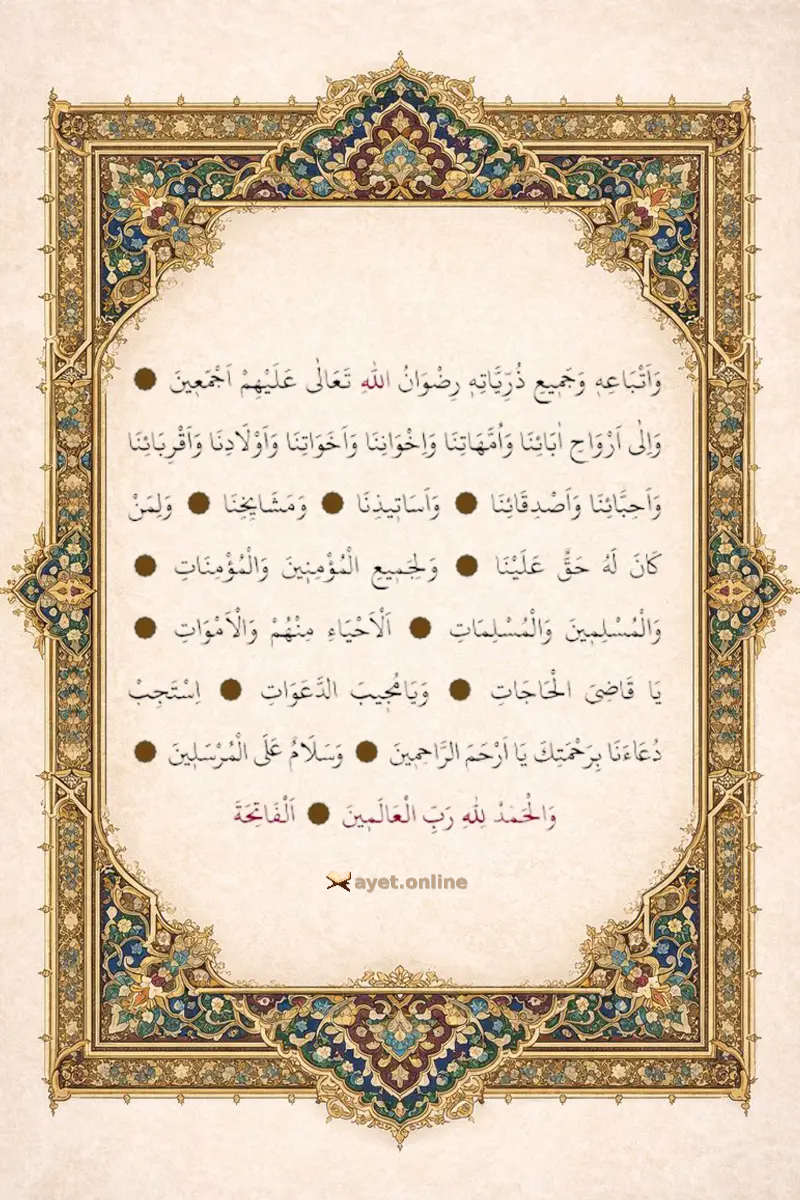 وَاَتْبَاعِهٖ وَجَمٖيعِ ذُرِّيَّاتِهٖ رِضْوَانُ اللّٰهِ تَعَالٰى عَلَيْهِمْ اَجْمَعٖينَ ●
وَاِلٰى اَرْوَاحِ اٰبَائِنَا وَاُمَّهَاتِنَا وَاِخْوَانِنَا وَاَخَوَاتِنَا وَاَوْلَادِنَا وَاَقْرِبَائِنَا
وَاَحِبَّائِنَا وَاَصْدِقَائِنَا ● وَاَسَاتٖيذِنَا ● وَمَشَايِخِنَا ● وَلِمَنْ
كَانَ لَهُ حَقٌّ عَلَيْنَا ● وَلِجَمٖيعِ الْمُؤْمِنٖينَ وَالْمُؤْمِنَاتِ ●
وَالْمُسْلِمٖينَ وَالْمُسْلِمَاتِ ● اَلْاَحْيَاءِ مِنْهُمْ وَالْاَمْوَاتِ ●
يَا قَاضِىَ الْحَاجَاتِ ● وَيَامُجٖيبَ الدَّعَوَاتِ ● اِسْتَجِبْ
دُعَاءَنَا بِرَحْمَتِكَ يَا اَرْحَمَ الرَّاحِمٖينَ ● وَسَلَامٌ عَلَى الْمُرْسَلٖينَ ●
وَالْحَمْدُ لِلّٰهِ رَبِّ الْعَالَمٖينَ ● اَلْفَاتِحَةَ
ayet.online